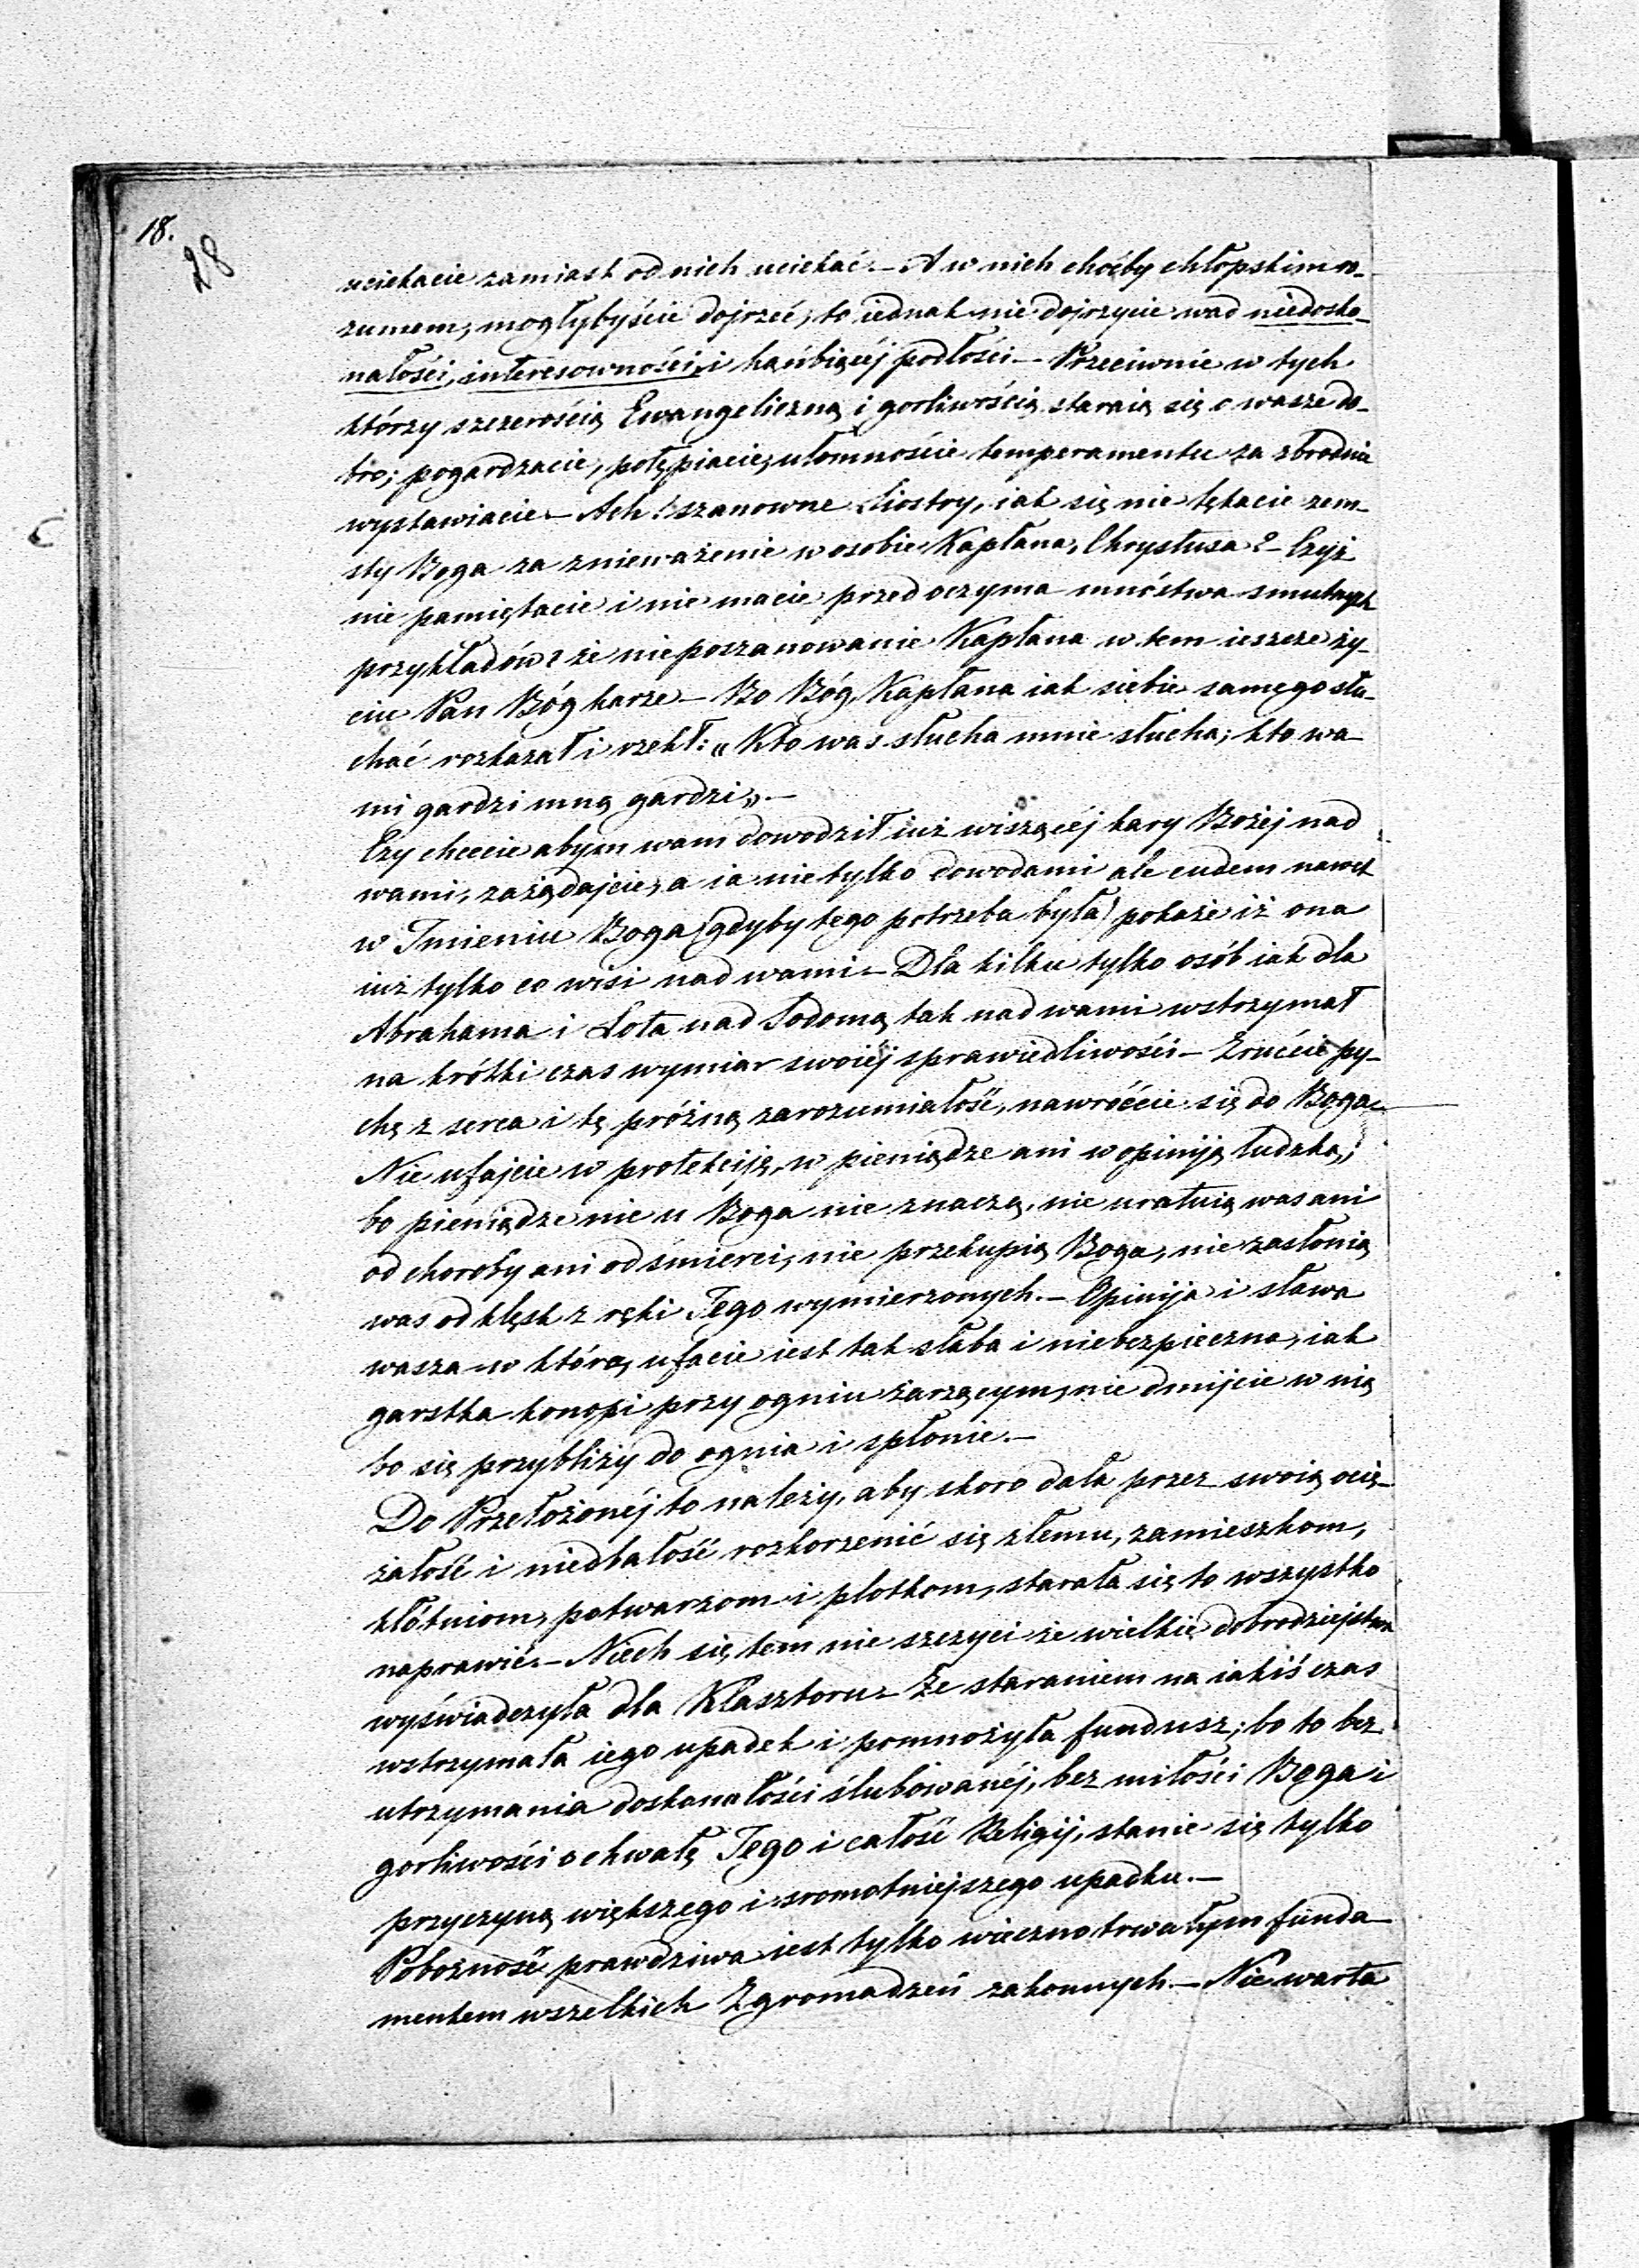 18.
28
uciekacie zamiast od nich uciekać. – A w nich choćby chłopskim ro-
zumem, mogłybyście dojrzeć, to iednak nie dojrzycie wad niedosko-
nałości, interesowności i hańbiącéj podłości – Przeciwnie w tych
którzy szczerością Ewangeliczną i gorliwością staraią się o wasze do-
bro; pogardzacie, potępiacie, ułomnoście temperamentu za zbrodnie
wystawiacie – Ach! szanowne Siostry, iak się nie lękacie zem-
sty Boga za znieważenie w osobie Kapłana, Chrystusa? – Czyż
nie pamiętacie i nie macie przed oczyma mnóstwa smutnych
przykładów? że nieposzanowanie Kapłana w tem ieszcze ży-
ciu Pan Bóg karze – Bo Bóg, Kapłana iak siebie samego słu-
chać rozkazał i rzekł: „Kto was słucha mnie słucha; kto wa
mi gardzi mną gardzi„. –
Czy chcecie abym wam dowodził iuż wiszącéj kary Bożéj nad
wami, zażądajcie, a ia nie tylko dowodami ale cudem nawet
w Imieniu Boga (gdyby tego potrzeba była) pokaże iż ona
iuż tylko co wisi nad wami – Dla kilku tylko osób iak dla
Abrahama i Lota nad Sodomą tak nad wami wstrzymał
na krótki czas wymiar swoiéj sprawiedliwości – Zrućcie py-
chę z serca i tę próżną zarozumiałość, nawróćcie się do Boga –
Nie ufajcie w protekciję, w pieniądze ani w opiniję ludzką;
bo pieniądze nie u Boga nie znaczą, nie uratuią was ani
od choroby ani od śmierci, nie przekupią Boga, nie zasłonią
was od klęsk z ręki Jego wymierzonych. – Opinija i sława
wasza w którą ufacie iest tak słaba i niebezpieczna, iak
garstka konopi przy ogniu żarzącym, nie dmijcie w nią
bo się przybliży do ognia i spłonie. –
Do Przełożonéj to należy, aby skoro dała przez swoią ocię-
żałość i niedbałość rozkorzenić się złemu, zamieszkom,
kłótniom, potwarzom i plotkom, starała się to wszystko
naprawić. – Niech się tem nie szczyci że wielkie dobrodziejstwa
wyświadczyła dla Klasztoru – Że staraniem na iakiś czas
wstrzymała iego upadek i pomnożyła fundusz; bo to bez
utrzymania doskonałości ślubowanéj, bez miłości Boga i
gorliwości o chwałę Jego i całość Religij, stanie się tylko
przyczyną większego i sromotniejszego upadku. –
Pobożność prawdziwa iest tylko wieczno trwałym funda-
mentem wszelkich Zgromadzeń zakonnych. – Nie warta